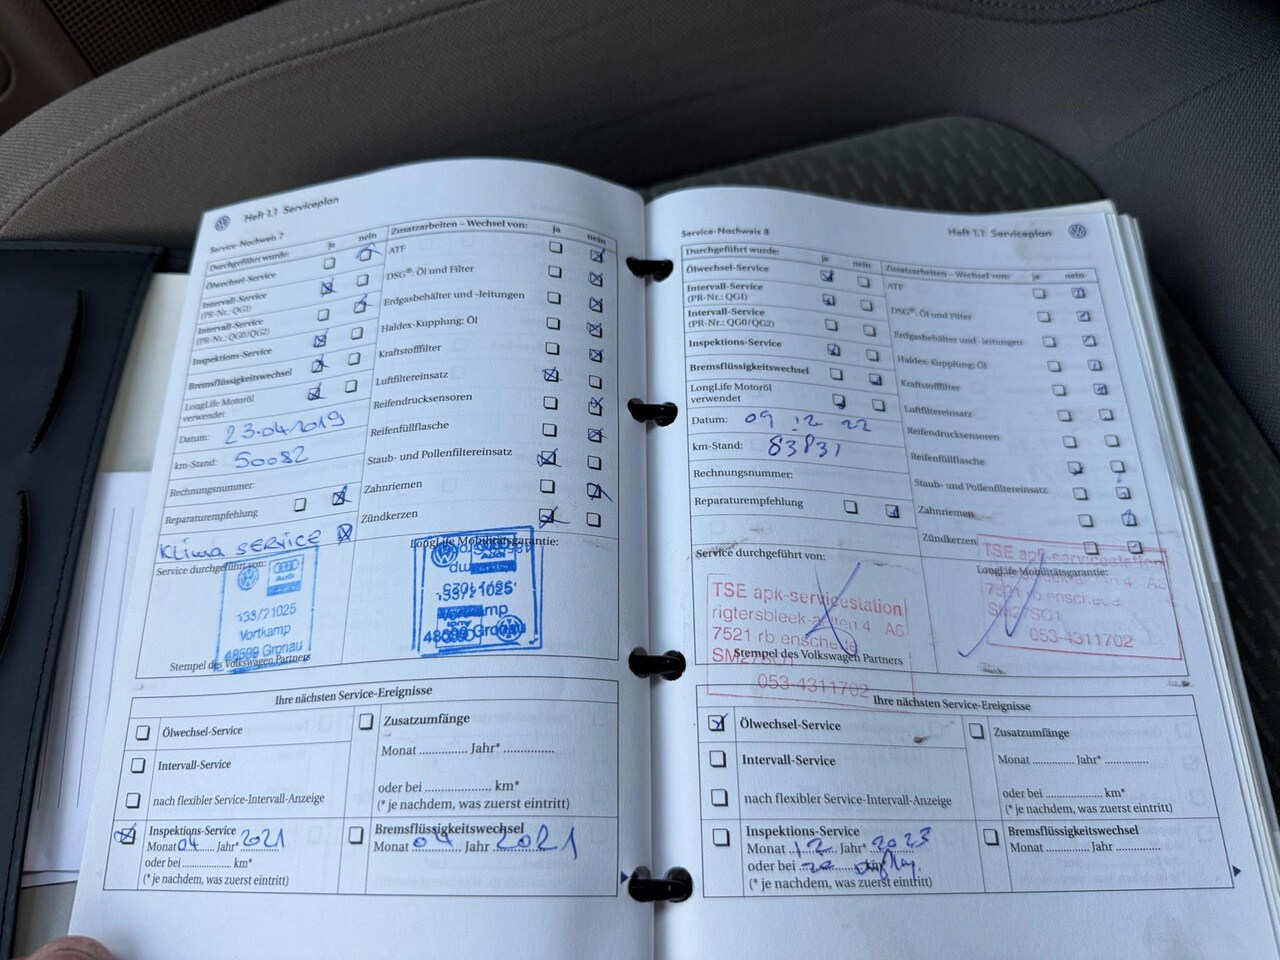 Heft 1.1 Serviceplan
Service-Nachweis 7
Durchgeführt wurde: ja nein
Ölwechsel-Service
Intervall-Service
(PR-Nr.: QG1)
Intervall-Service
(PR-Nr.: QG0/QG2)
Inspektions-Service
Bremsflüssigkeitswechsel
LongLife Motoröl
verwendet
Datum: 23.04.2019
km-Stand: 50082
Rechnungsnummer:
Reparaturempfehlung
Klima SERVICE
Zusatzarbeiten – Wechsel von: ja nein
ATF
DSG®: Öl und Filter
Erdgasbehälter und -leitungen
Haldex-Kupplung: Öl
Kraftstofffilter
Luftfiltereinsatz
Reifendrucksensoren
Reifenfüllflasche
Staub- und Pollenfiltereinsatz
Zahnriemen
Zündkerzen
Service durchgeführt von:
Audi
Vortkamp
48599 Gronau
Stempel des Volkswagen Partners
LongLife Mobilitätsgarantie:
48599 Gronau
Ihre nächsten Service-Ereignisse
Ölwechsel-Service
Intervall-Service
nach flexibler Service-Intervall-Anzeige
Inspektions-Service
Monat 04 Jahr* 2021
oder bei ............... km*
(* je nachdem, was zuerst eintritt)
Zusatzumfänge
Monat ............... Jahr* ...............
oder bei .................... km*
(* je nachdem, was zuerst eintritt)
Bremsflüssigkeitswechsel
Monat 04 Jahr 2021
Service-Nachweis 8
Heft 1.1 Serviceplan
Durchgeführt wurde: ja nein
Ölwechsel-Service
Intervall-Service
(PR-Nr.: QG1)
Intervall-Service
(PR-Nr.: QG0/QG2)
Inspektions-Service
Bremsflüssigkeitswechsel
LongLife Motoröl
verwendet
Datum: 09 12 22
km-Stand: 83831
Rechnungsnummer:
Reparaturempfehlung
Zusatzarbeiten – Wechsel von: ja nein
ATF
DSG®: Öl und Filter
Erdgasbehälter und -leitungen
Haldex-Kupplung: Öl
Kraftstofffilter
Luftfiltereinsatz
Reifendrucksensoren
Reifenfüllflasche
Staub- und Pollenfiltereinsatz
Zahnriemen
Zündkerzen
Service durchgeführt von:
TSE apk-servicestation
7521 rb enschede
053-4311702
Stempel des Volkswagen Partners
LongLife Mobilitätsgarantie:
TSE apk-servicestation
7521 rb enschede
053-4311702
Ihre nächsten Service-Ereignisse
Ölwechsel-Service
Intervall-Service
nach flexibler Service-Intervall-Anzeige
Inspektions-Service
Monat 12 Jahr* 2023
oder bei km*
(* je nachdem, was zuerst eintritt)
Zusatzumfänge
Monat ............... Jahr* ...............
oder bei .................... km*
(* je nachdem, was zuerst eintritt)
Bremsflüssigkeitswechsel
Monat ............... Jahr ...............